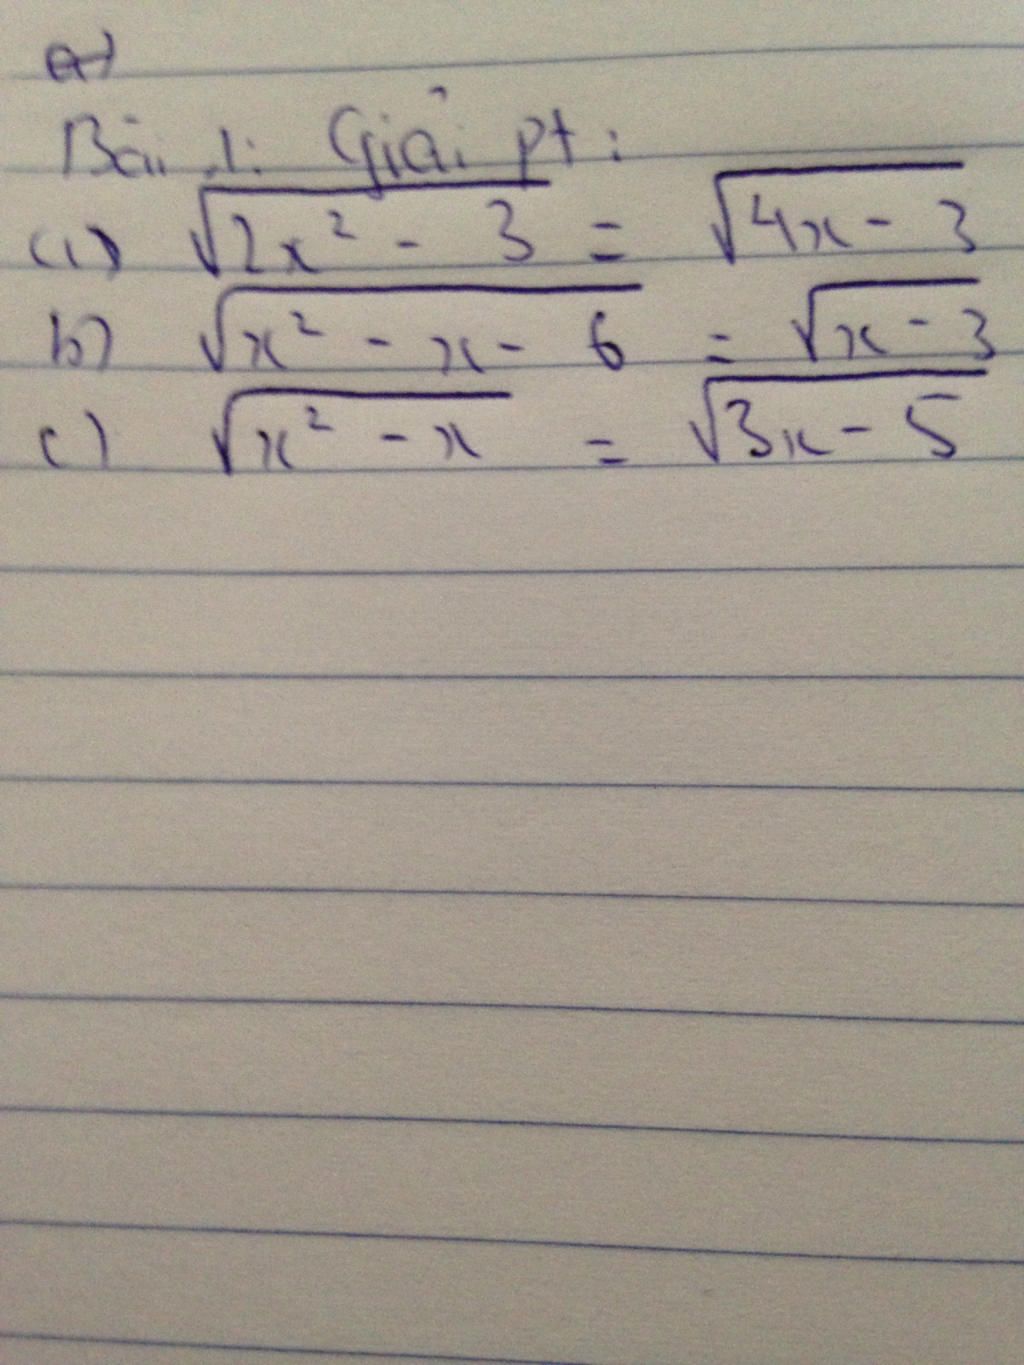 a)
Bài 1: Giải pt:
a) √2x² - 3 = √4x - 3
b) √x² - x - 6 = √x - 3
c) √x² - x = √3x - 5